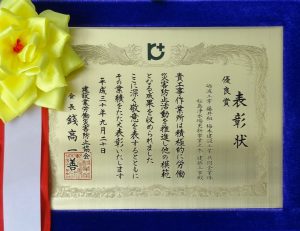 表彰状
優良賞
貴工事作業所は積極的に労働
災害防止活動を推進し他の模範
となる成果を収められました
ここに深く敬意を表するとともに
その業績をたたえ表彰いたします
平成三十年九月二十日
建設業労働災害防止協会
会長 錢高一善